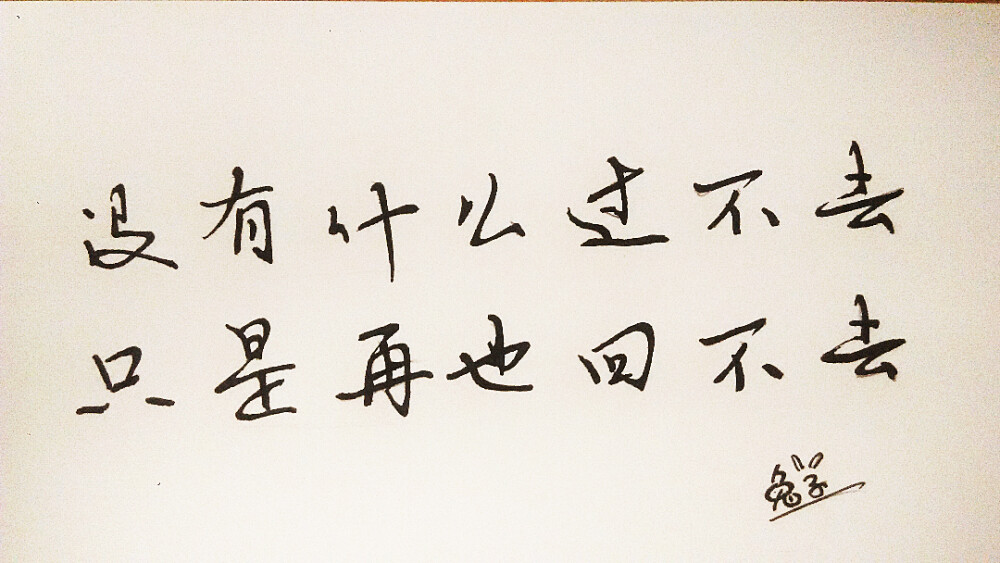 没有什么过不去
只是再也回不去
兔子